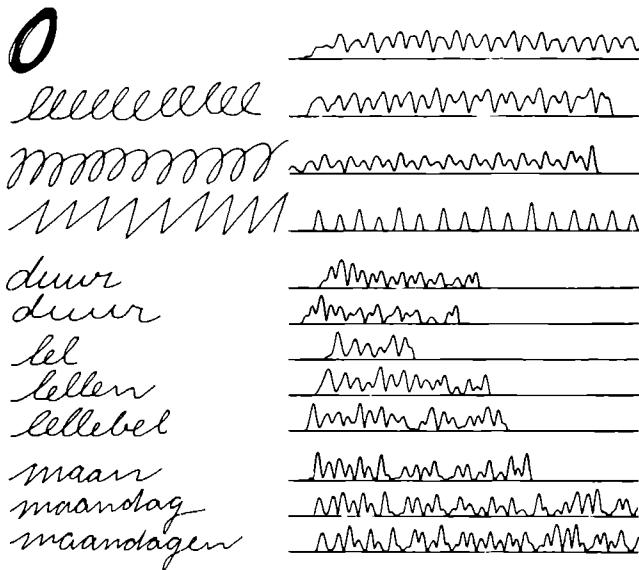 duur
duur
lel
lellen
lellebel
maan
maandag
maandagen